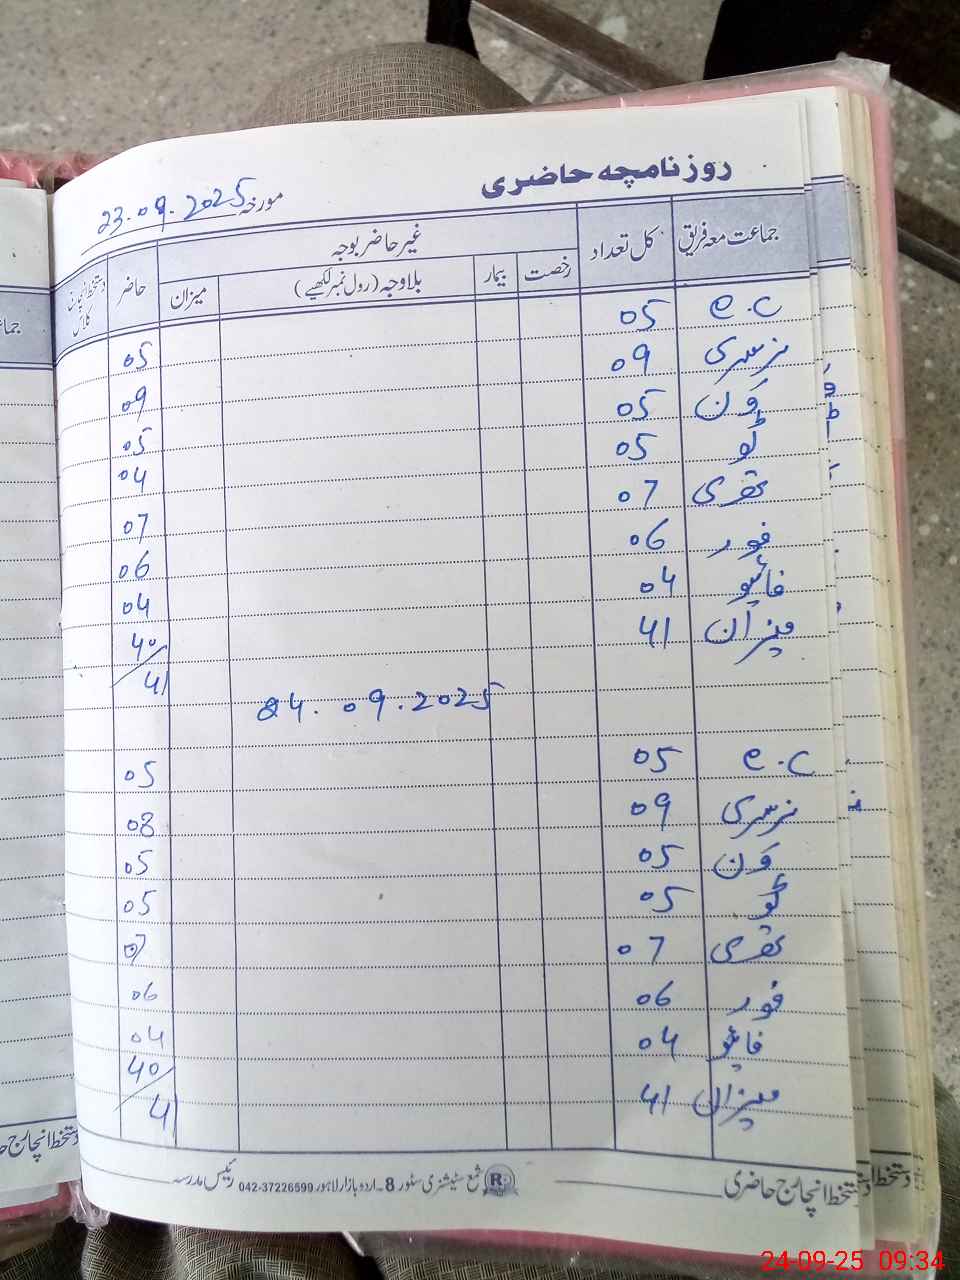 روزنامچہ حاضری
مورخہ 23.09.2025
جماعت معہ فریق کل تعداد غیر حاضر بوجہ حاضر دستخط انچارج کلاس
رخصت بیمار بلاوجہ (رول نمبر لکھیے) میزان
e.c 05 05
نرسری 09 09
ون 05 05
ٹو 05 04
تھری 07 07
فور 06 06
فائیو 04 04
میزان 41 40/41
24.09.2025
e.c 05 05
نرسری 09 08
ون 05 05
ٹو 05 05
تھری 07 07
فور 06 06
فائیو 04 04
میزان 41 40/41
دستخط انچارج حاضری شمع سٹیشنری سٹور 8۔اردو بازار لاہور 042-37226599 رئیس مدرسہ
24-09-25 09:34